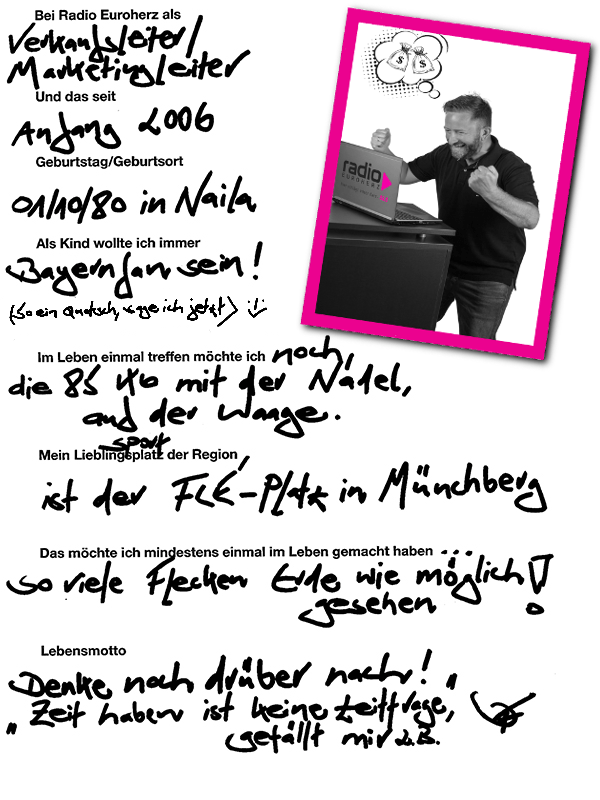 Bei Radio Euroherz als
Verkaufsleiter/
Marketingleiter
Und das seit
Anfang 2006
Geburtstag/Geburtsort
01/10/80 in Naila
Als Kind wollte ich immer
Bayernfan sein!
(So ein Quatsch, sage ich jetzt)
Im Leben einmal treffen möchte ich noch,
die 85 KG mit der Nadel,
auf der Waage.
Mein Lieblingsplatz der Region
sport
ist der FCE-Platz in Münchberg
Das möchte ich mindestens einmal im Leben gemacht haben ...
so viele Flecken Erde wie möglich
gesehen!
Lebensmotto
Denke noch drüber nach!
"Zeit haben ist keine Zeitfrage",
gefällt mir z.B.
$ $
radio
EUROHERZ